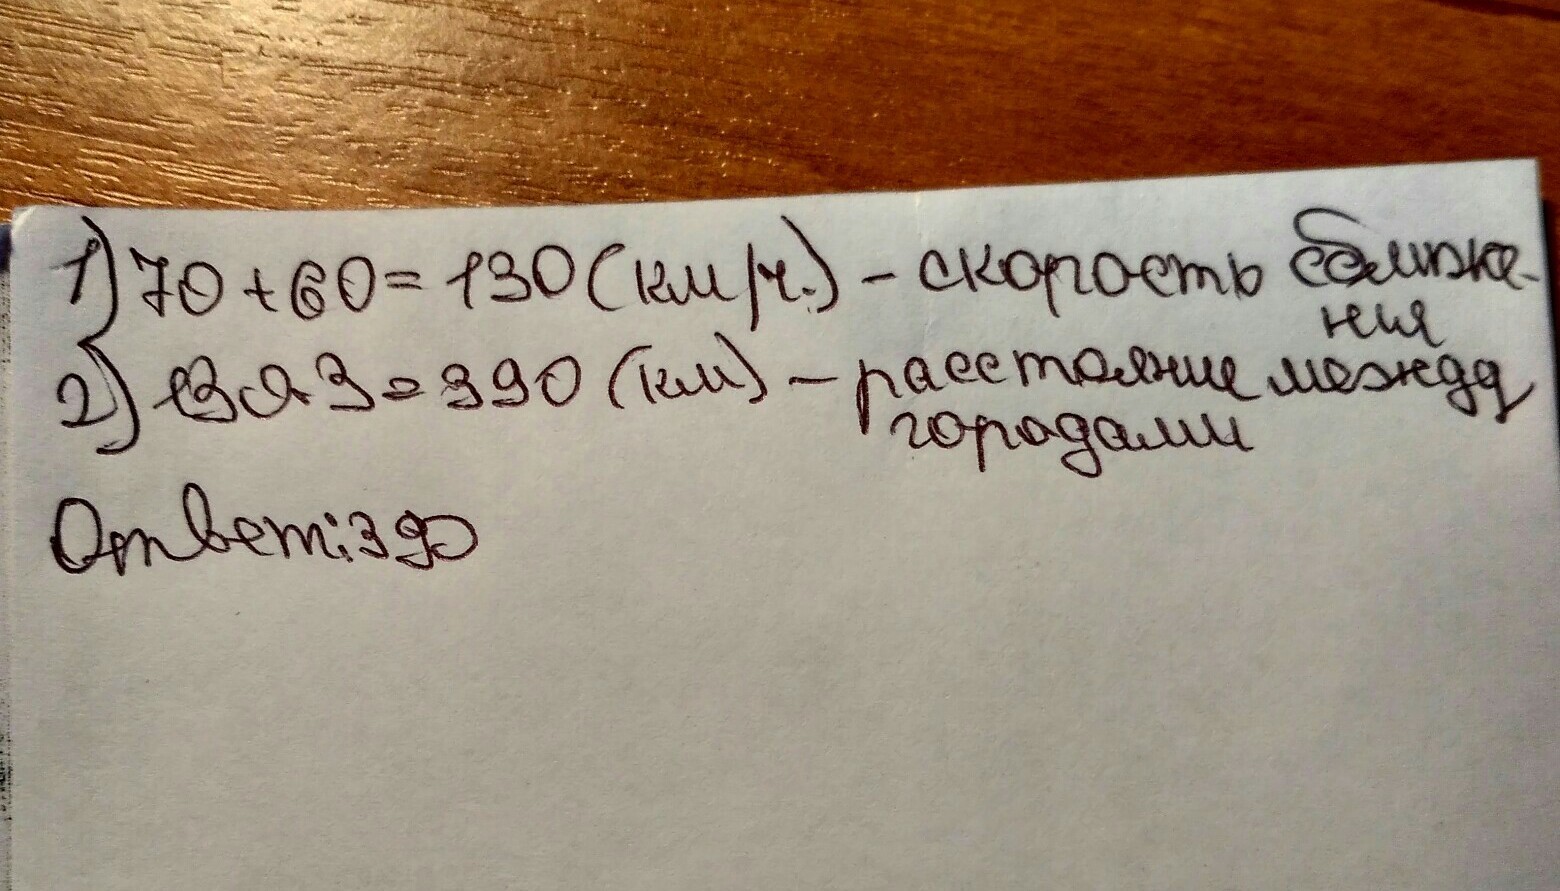 1) 70 + 60 = 130 (км/ч.) – скорость сближе-
ния
2) 130 · 3 = 390 (км) – расстояние между
городами
Ответ: 390